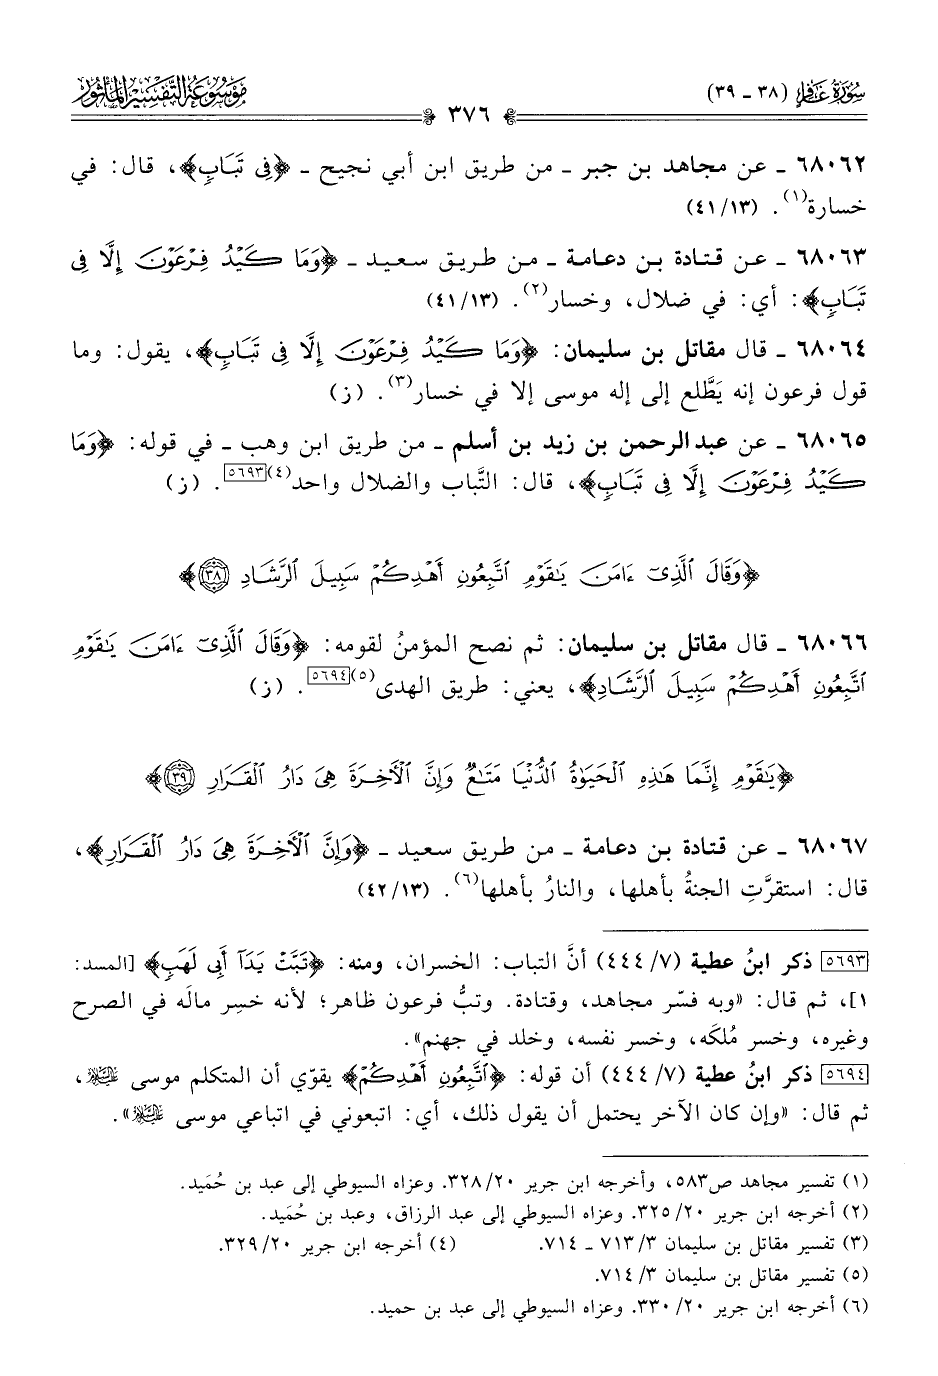 سورة غافر (٣٨ - ٣٩)
٣٧٦
موسوعة التفسير المأثور
٦٨٠٦٢ - عن مجاهد بن جبر - من طريق ابن أبي نجيح - ﴿فِى تَبَابٍ﴾، قال: في
خسارة(١). (٤١/١٣)
٦٨٠٦٣ - عن قتادة بن دعامة - من طريق سعيد - ﴿وَمَا كَيْدُ فِرْعَوْنَ إِلَّا فِى
تَبَابٍ﴾: أي: في ضلال، وخسار(٢). (٤١/١٣)
٦٨٠٦٤ - قال مقاتل بن سليمان: ﴿وَمَا كَيْدُ فِرْعَوْنَ إِلَّا فِى تَبَابٍ﴾، يقول: وما
قول فرعون إنه يَطَّلع إلى إله موسى إلا في خسار(٣). (ز)
٦٨٠٦٥ - عن عبد الرحمن بن زيد بن أسلم - من طريق ابن وهب - في قوله: ﴿وَمَا
كَيْدُ فِرْعَوْنَ إِلَّا فِى تَبَابٍ﴾، قال: التَّباب والضلال واحد(٤)[٥٦٩٣]. (ز)
﴿وَقَالَ ٱلَّذِىٓ ءَامَنَ يَـٰقَوْمِ ٱتَّبِعُونِ أَهْدِكُمْ سَبِيلَ ٱلرَّشَادِ ٣٨﴾
٦٨٠٦٦ - قال مقاتل بن سليمان: ثم نصح المؤمنُ لقومه: ﴿وَقَالَ ٱلَّذِىٓ ءَامَنَ يَـٰقَوْمِ
ٱتَّبِعُونِ أَهْدِكُمْ سَبِيلَ ٱلرَّشَادِ﴾، يعني: طريق الهدى(٥)[٥٦٩٤]. (ز)
﴿يَـٰقَوْمِ إِنَّمَا هَـٰذِهِ ٱلْحَيَوٰةُ ٱلدُّنْيَا مَتَـٰعٌ وَإِنَّ ٱلْـَٔاخِرَةَ هِىَ دَارُ ٱلْقَرَارِ ٣٩﴾
٦٨٠٦٧ - عن قتادة بن دعامة - من طريق سعيد - ﴿وَإِنَّ ٱلْـَٔاخِرَةَ هِىَ دَارُ ٱلْقَرَارِ﴾،
قال: استقرَّتِ الجنةُ بأهلها، والنارُ بأهلها(٦). (٤٢/١٣)
[٥٦٩٣] ذكر ابنُ عطية (٧/ ٤٤٤) أنَّ التباب: الخسران، ومنه: ﴿تَبَّتْ يَدَآ أَبِى لَهَبٍ﴾ [المسد:
١]، ثم قال: «وبه فسّر مجاهد، وقتادة. وتبُّ فرعون ظاهر؛ لأنه خسِر مالَه في الصرح
وغيره، وخسر مُلكَه، وخسر نفسه، وخلد في جهنم».
[٥٦٩٤] ذكر ابنُ عطية (٧/ ٤٤٤) أن قوله: ﴿ٱتَّبِعُونِ أَهْدِكُمْ﴾ يقوّي أن المتكلم موسى عليه السلام،
ثم قال: «وإن كان الآخر يحتمل أن يقول ذلك، أي: اتبعوني في اتباعي موسى عليه السلام».
(١) تفسير مجاهد ص٥٨٣، وأخرجه ابن جرير ٣٢٨/٢٠. وعزاه السيوطي إلى عبد بن حُمَيد.
(٢) أخرجه ابن جرير ٣٢٥/٢٠. وعزاه السيوطي إلى عبد الرزاق، وعبد بن حُمَيد.
(٣) تفسير مقاتل بن سليمان ٧١٣/٣ - ٧١٤. (٤) أخرجه ابن جرير ٣٢٩/٢٠.
(٥) تفسير مقاتل بن سليمان ٣/ ٧١٤.
(٦) أخرجه ابن جرير ٣٣٠/٢٠. وعزاه السيوطي إلى عبد بن حميد.